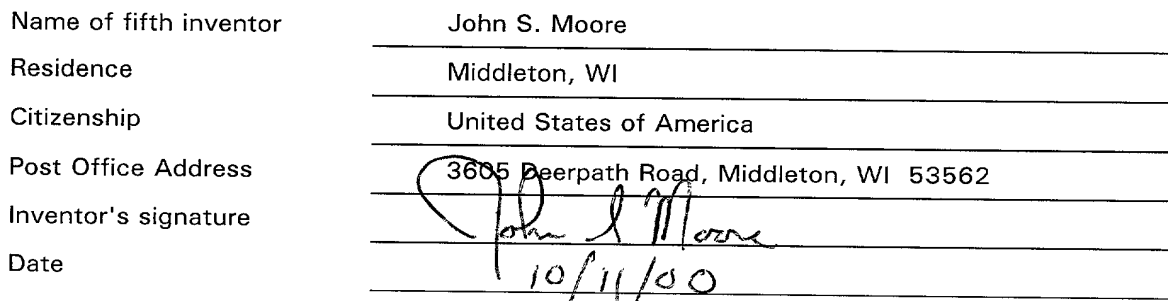 Name of fifth inventor John S. Moore
Residence Middleton, WI
Citizenship United States of America
Post Office Address 3605 Deerpath Road, Middleton, WI 53562
Inventor's signature John S Moore
Date 10/11/00